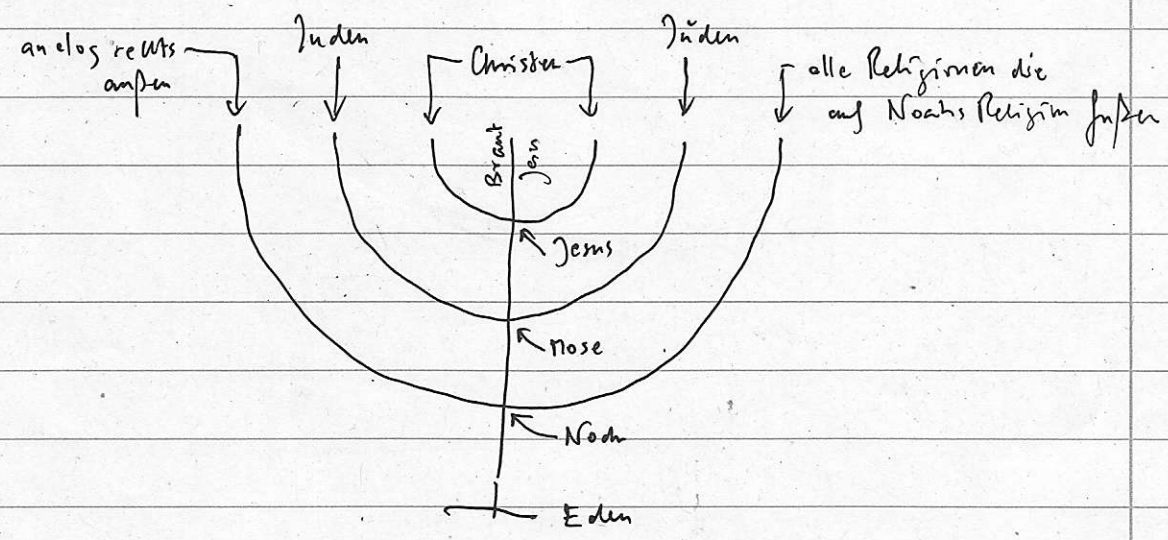 analog rechts
außen
Juden
Christen
Juden
alle Religionen die
auf Noahs Religion fußen
Braut
Jesu
Jesus
Mose
Noah
Eden